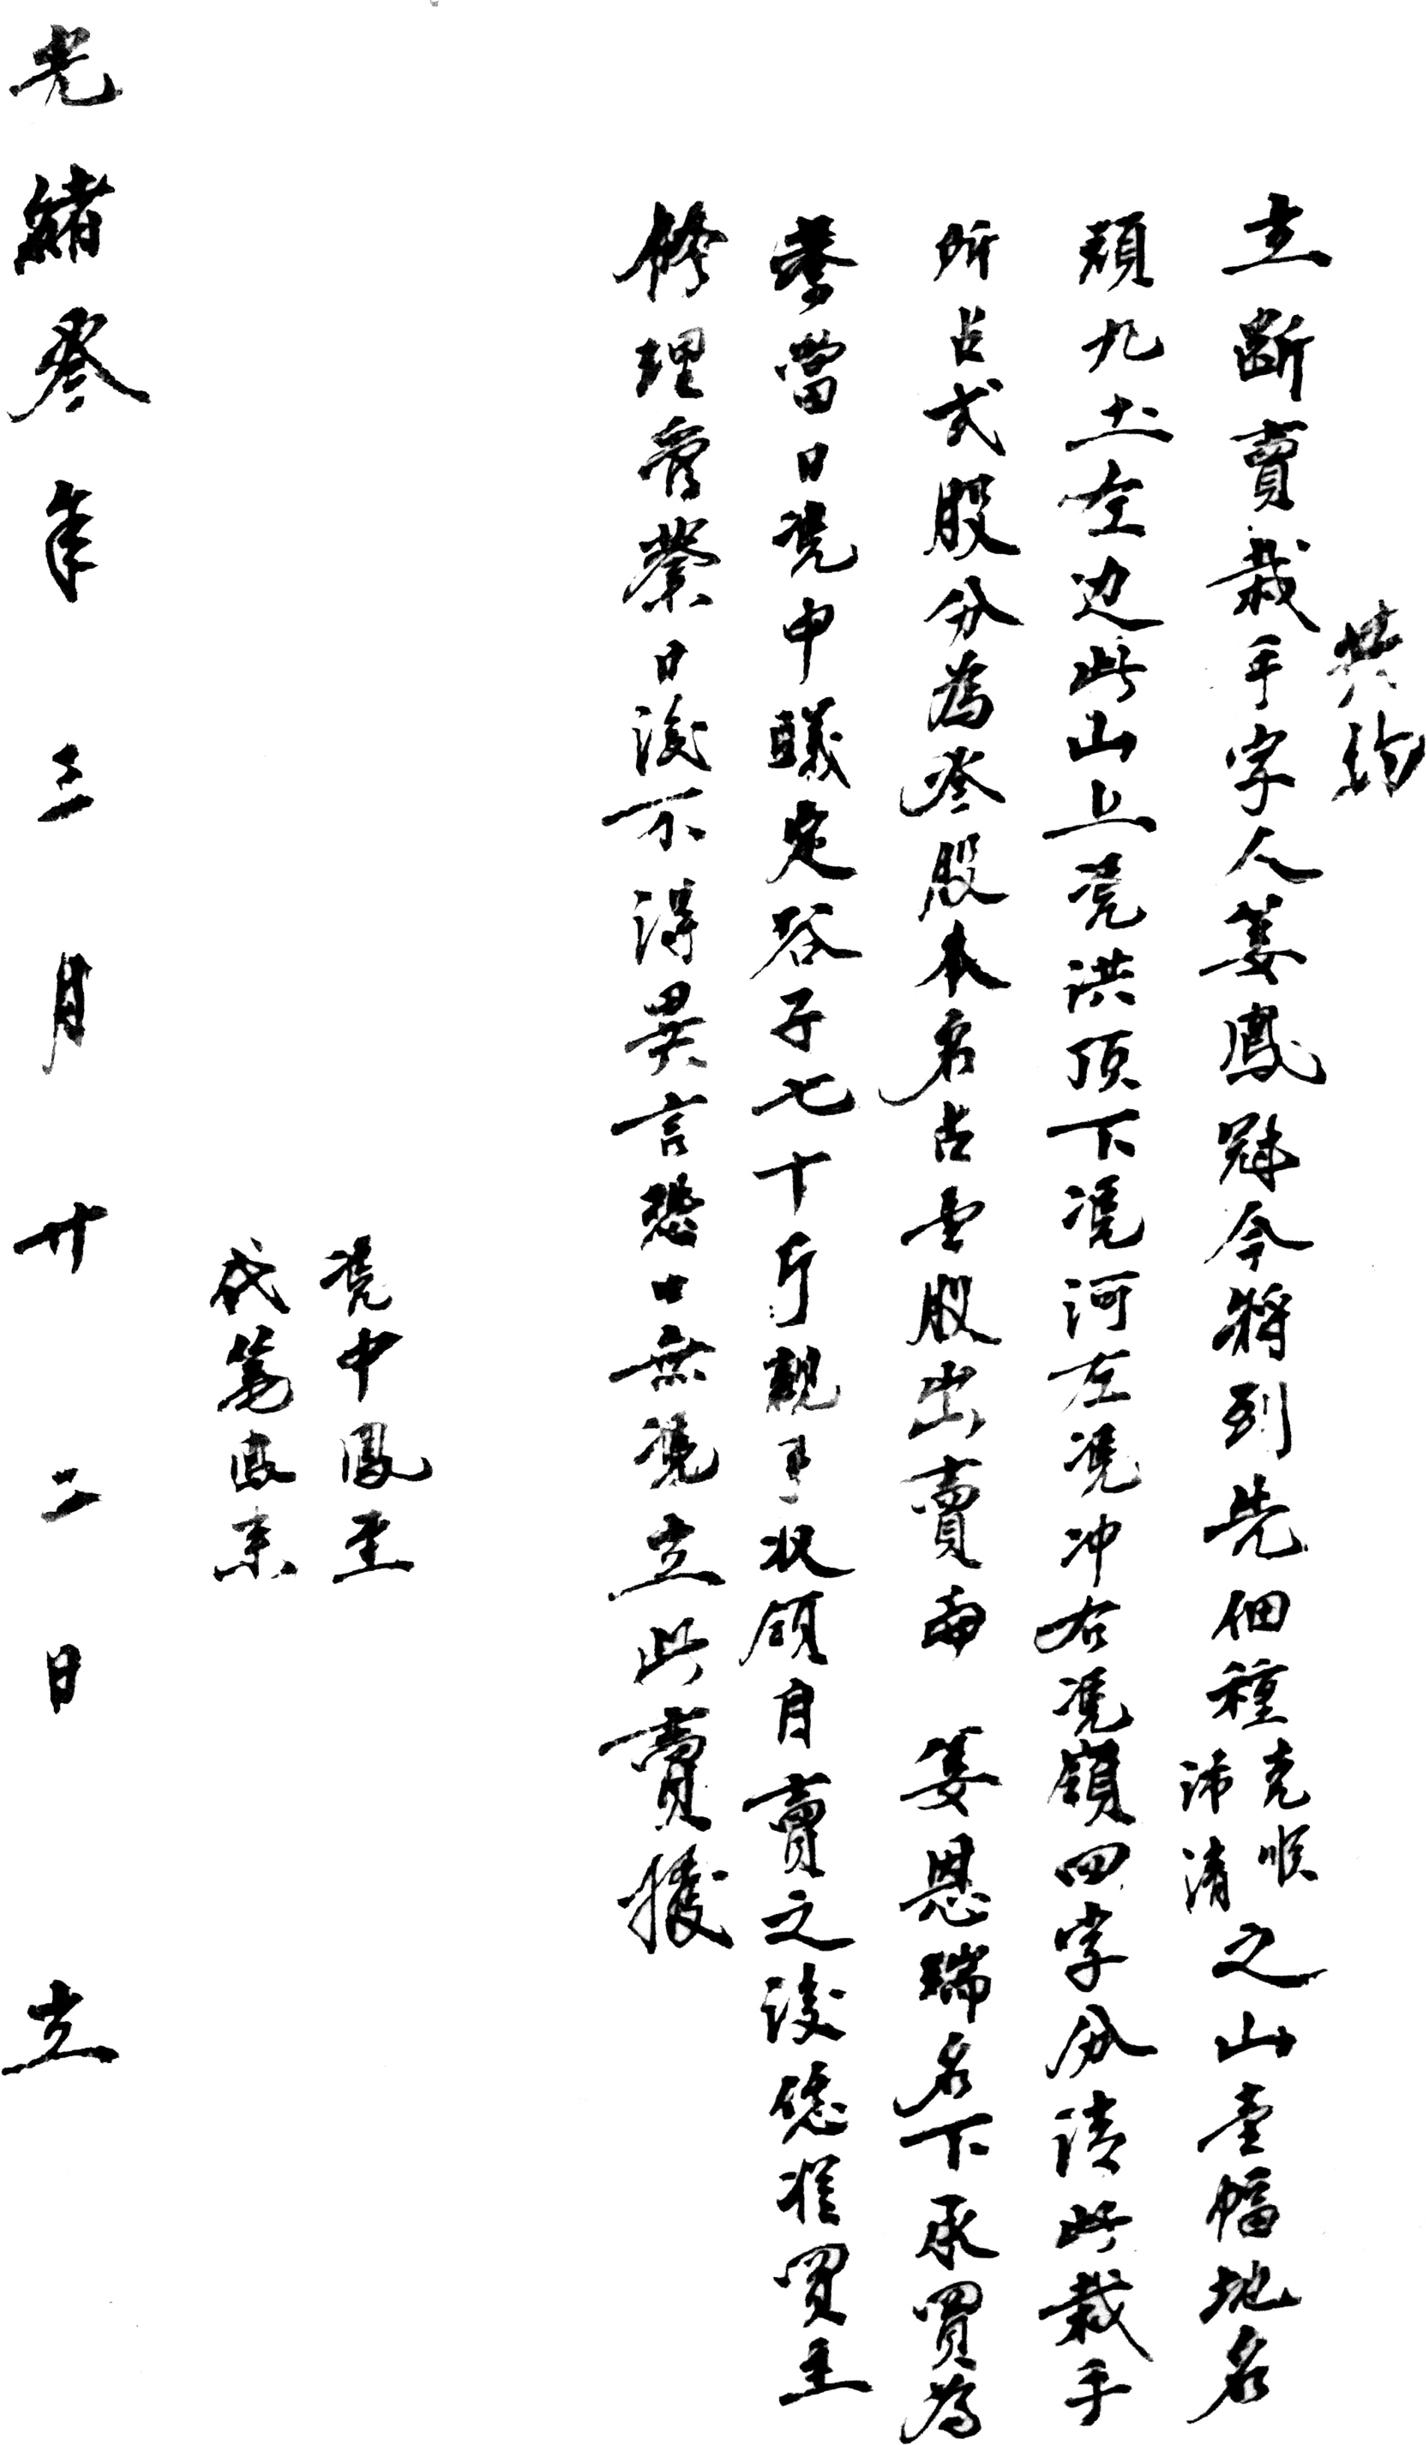 共約
立斷賣栽手字人姜鳳冠今將到先佃種克順沛清之山壹幅地名
頪九土左边此山上凴洪頂下凴河左凴冲右凴嶺四字分清此栽手
所占弍股分為叁股本名占壹股出賣與姜恩瑞名下承買為
業當日凴中議定谷子七十斤親手收領自賣之後任從買主
修理管業日後不得異言恐口無凴立此賣據
凴中鳳至
代筆鳳來
光緒叁年三月廿二日立